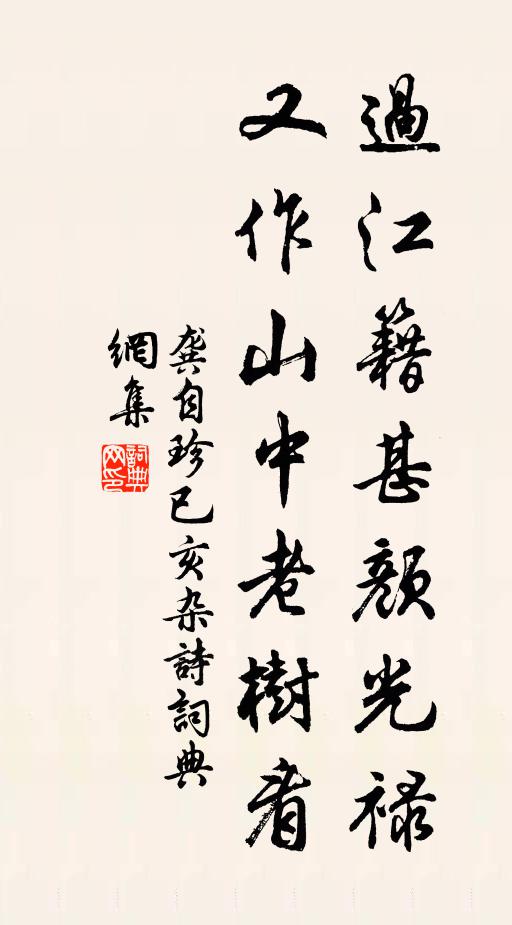 過江籍甚顏光祿
又作山中老樹看
龔自珍已亥杂詩詞典
網集
詞典網印